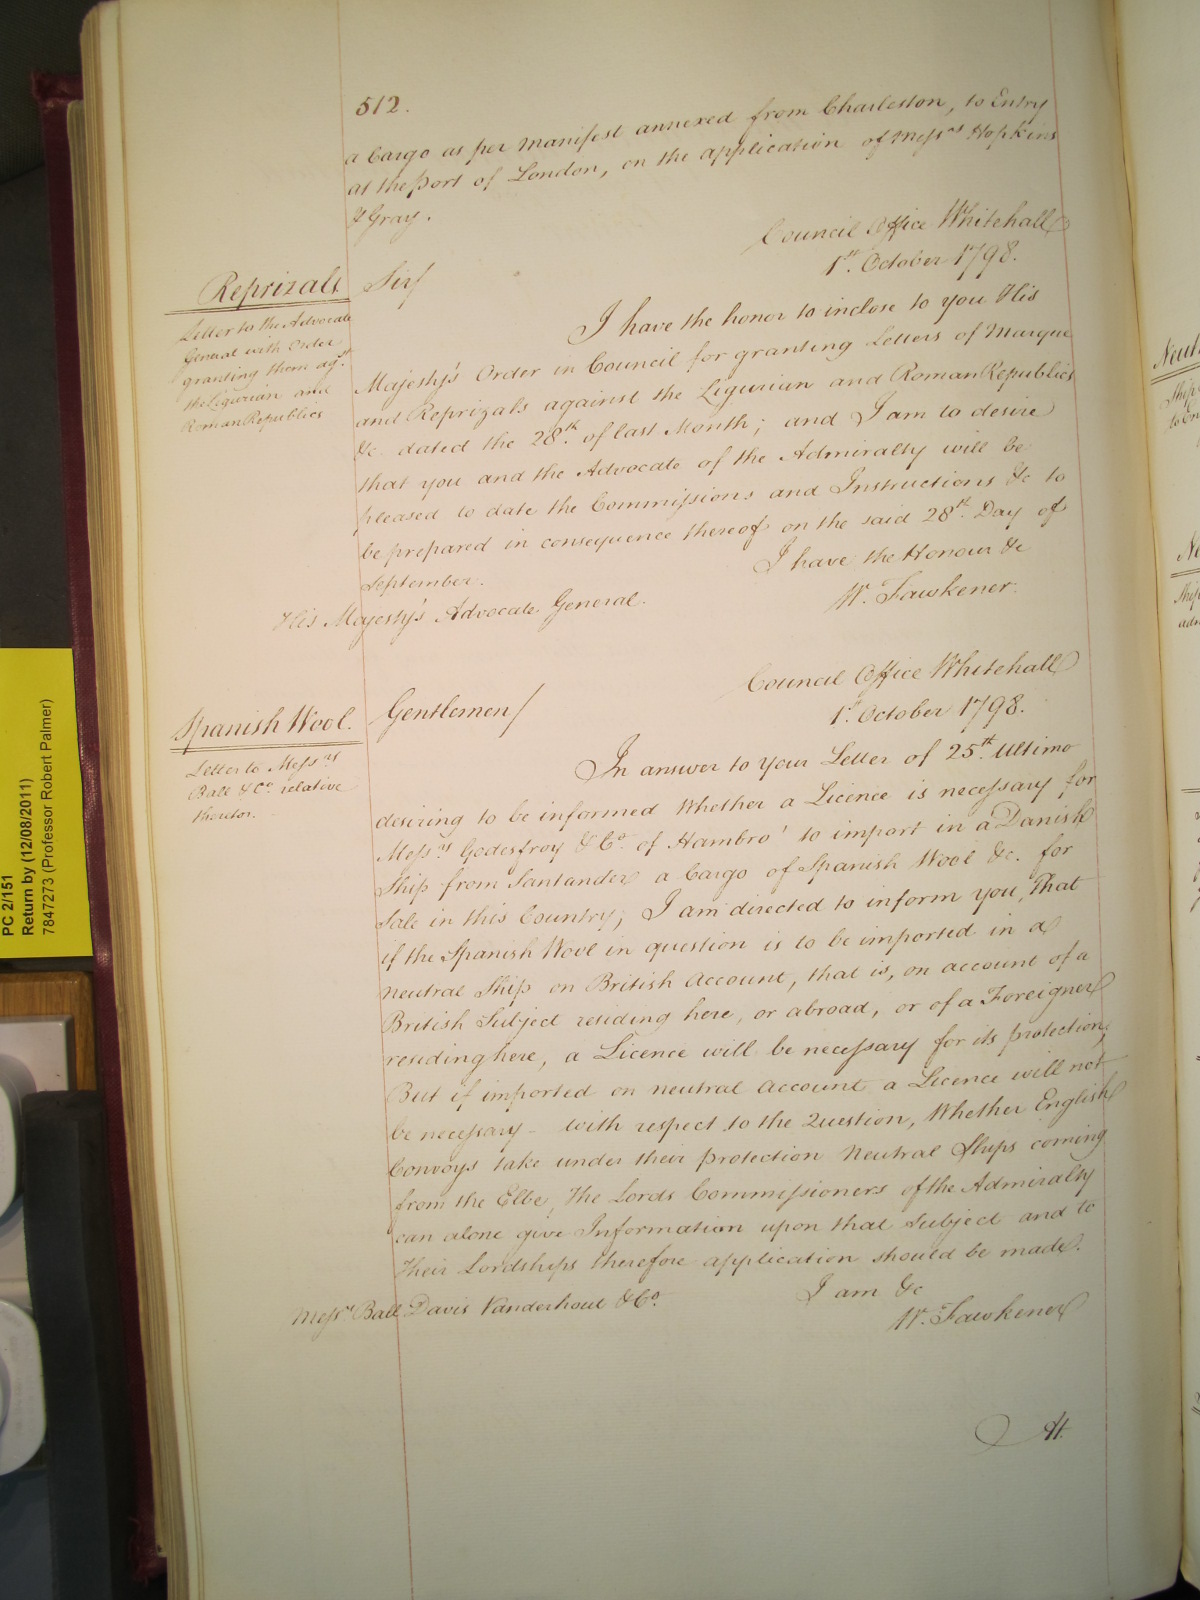 512.
a Cargo as per Manifest annexed from Charleston, to Entry
at the Port of London, on the application of Messrs Hopkins
& Gray.
Council Office Whitehall
1st October 1798.
Reprizals
Letter to the Advocate
General with Order
granting them agst
the Ligurian and
Roman Republics
Sir/
I have the honor to inclose to you His
Majesty's Order in Council for granting Letters of Marque
and Reprizals against the Ligurian and Roman Republics
&c. dated the 28th of last Month; and I am to desire
that you and the Advocate of the Admiralty will be
pleased to date the Commissions and Instructions &c to
be prepared in consequence thereof on the said 28th Day of
September.
I have the Honour &c
W. Fawkener.
His Majesty's Advocate General.
Council Office Whitehall
1st October 1798.
Spanish Wool.
Letter to Messrs
Ball & Co relative
thereto.
Gentlemen/
In answer to your Letter of 25th Ultimo
desiring to be informed Whether a Licence is necessary for
Messrs Godesfroy & Co. of Hambro' to import in a Danish
Ship from Santander a Cargo of Spanish Wool &c. for
Sale in this Country; I am directed to inform you, That
if the Spanish Wool in question is to be imported in a
Neutral Ship on British Account, that is, on account of a
British Subject residing here, or abroad, or of a Foreigner
residing here, a Licence will be necessary for its protection,
But if imported on neutral Account a Licence will not
be necessary - with respect to the Question, Whether English
Convoys take under their protection Neutral Ships coming
from the Elbe, The Lords Commissioners of the Admiralty
can alone give Information upon that Subject and to
Their Lordships therefore application should be made.
I am &c
W. Fawkener
Messrs Ball Davis Vanderhout & Co.
At
PC 2/151
Return by (12/08/2011)
7847273 (Professor Robert Palmer)